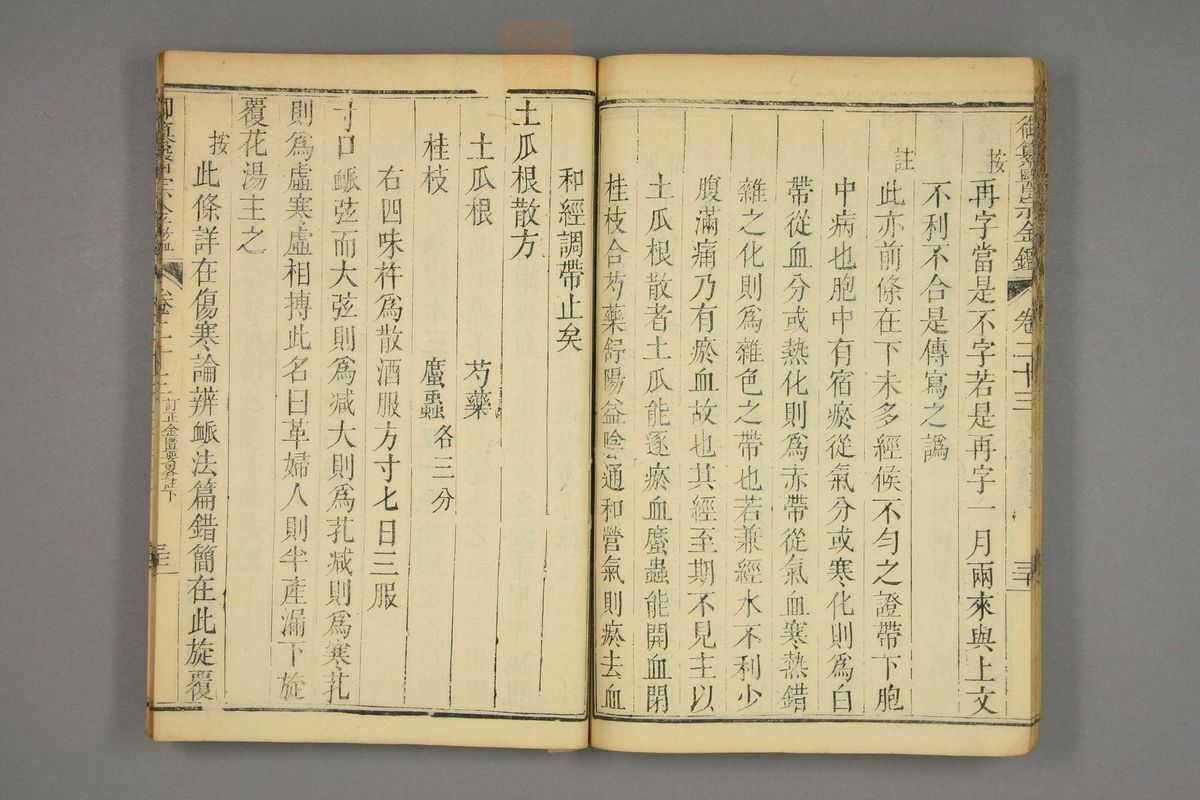 御纂醫宗金鑑 卷二十三 三十
按再字當是不字若是再字一月兩來與上文
不利不合是傳寫之譌
註此亦前條在下未多經候不勻之證帶下胞
中病也胞中有宿瘀從氣分或寒化則爲白
帶從血分或熱化則爲赤帶從氣血寒熱錯
雜之化則爲雜色之帶也若兼經水不利少
腹滿痛乃有瘀血故也其經至期不見主以
土瓜根散者土瓜能逐瘀血䗪蟲能開血閉
桂枝合芍藥舒陽益陰通和營氣則瘀去血
和經調帶止矣
土瓜根散方
土瓜根 芍藥
桂枝 䗪蟲各三分
右四味杵爲散酒服方寸匕日三服
寸口脈弦而大弦則爲減大則爲芤減則爲寒芤
則爲虛寒虛相搏此名曰革婦人則半產漏下旋
覆花湯主之
按此條詳在傷寒論辨脈法篇錯簡在此旋覆
卷二十三 訂正金匱要畧註下